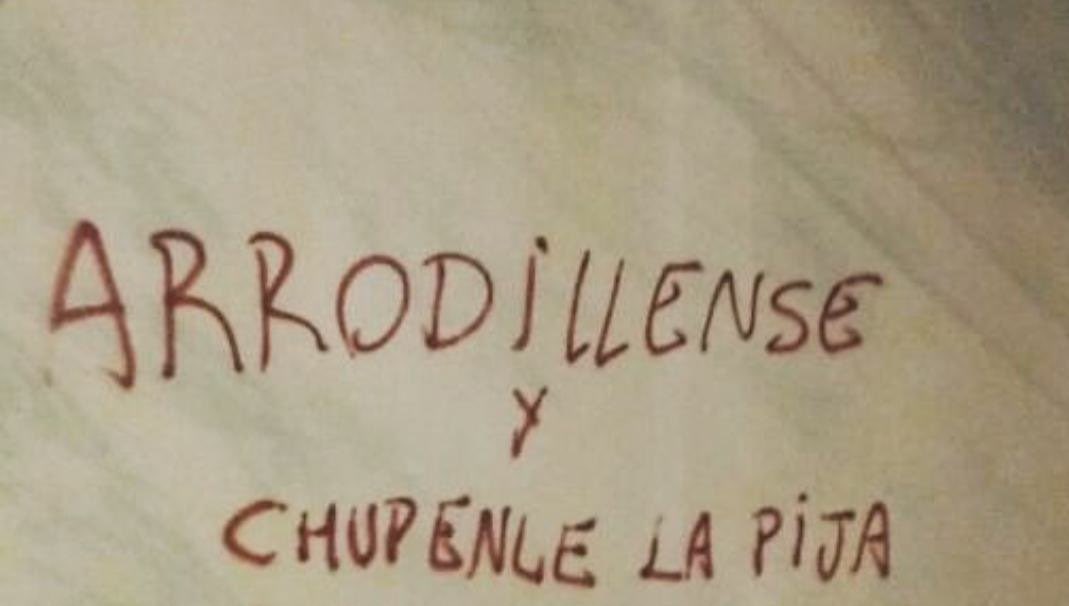 ARRODiLLENSE
Y
CHUPENLE LA PiJA